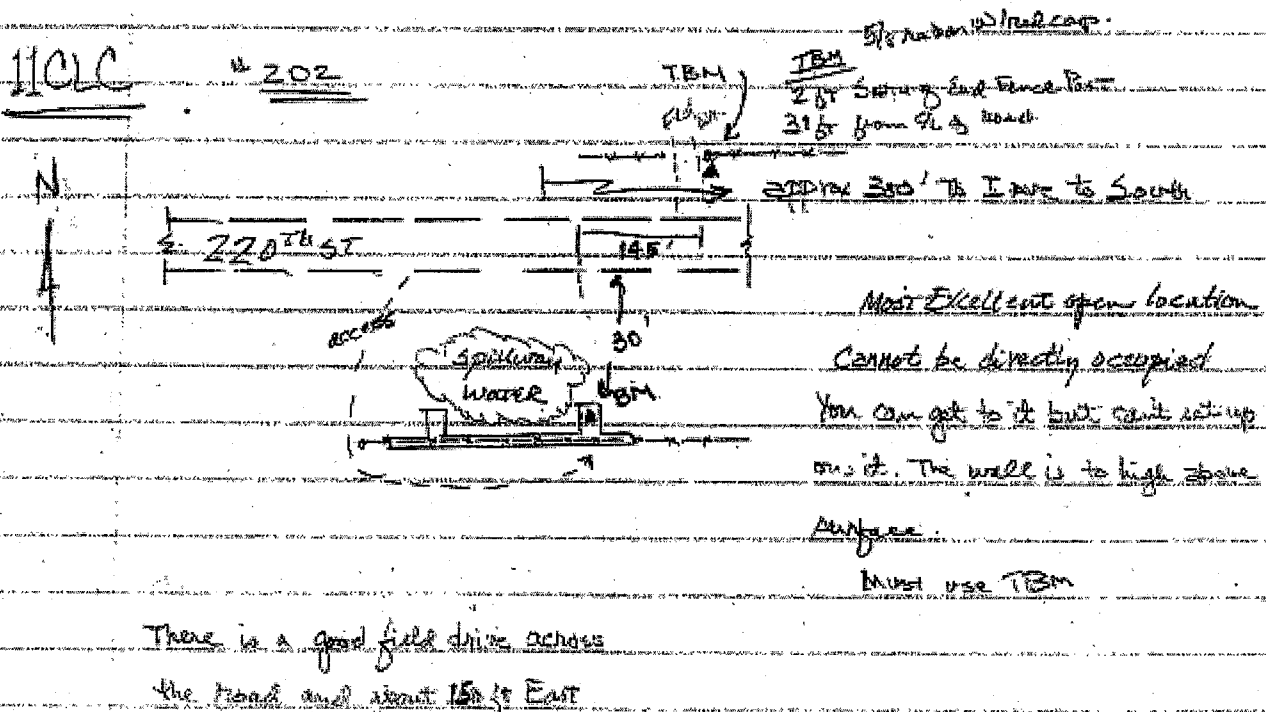 5/8 rebar w/red cap.
11CLC " 202
TBM
TBM
2 ft SW of End Fence Post
31 ft from C/L of Road
Fld Dr
N
approx 300' To I ave to South
220TH ST
145'
access
30'
Spillway
WATER
BM
Most Exellent open location
Cannot be directly occupied
You can get to it but can't set-up
on it. The wall is to high above
surface.
Must use TBM
There is a good field drive across
the road and about 150 ft East